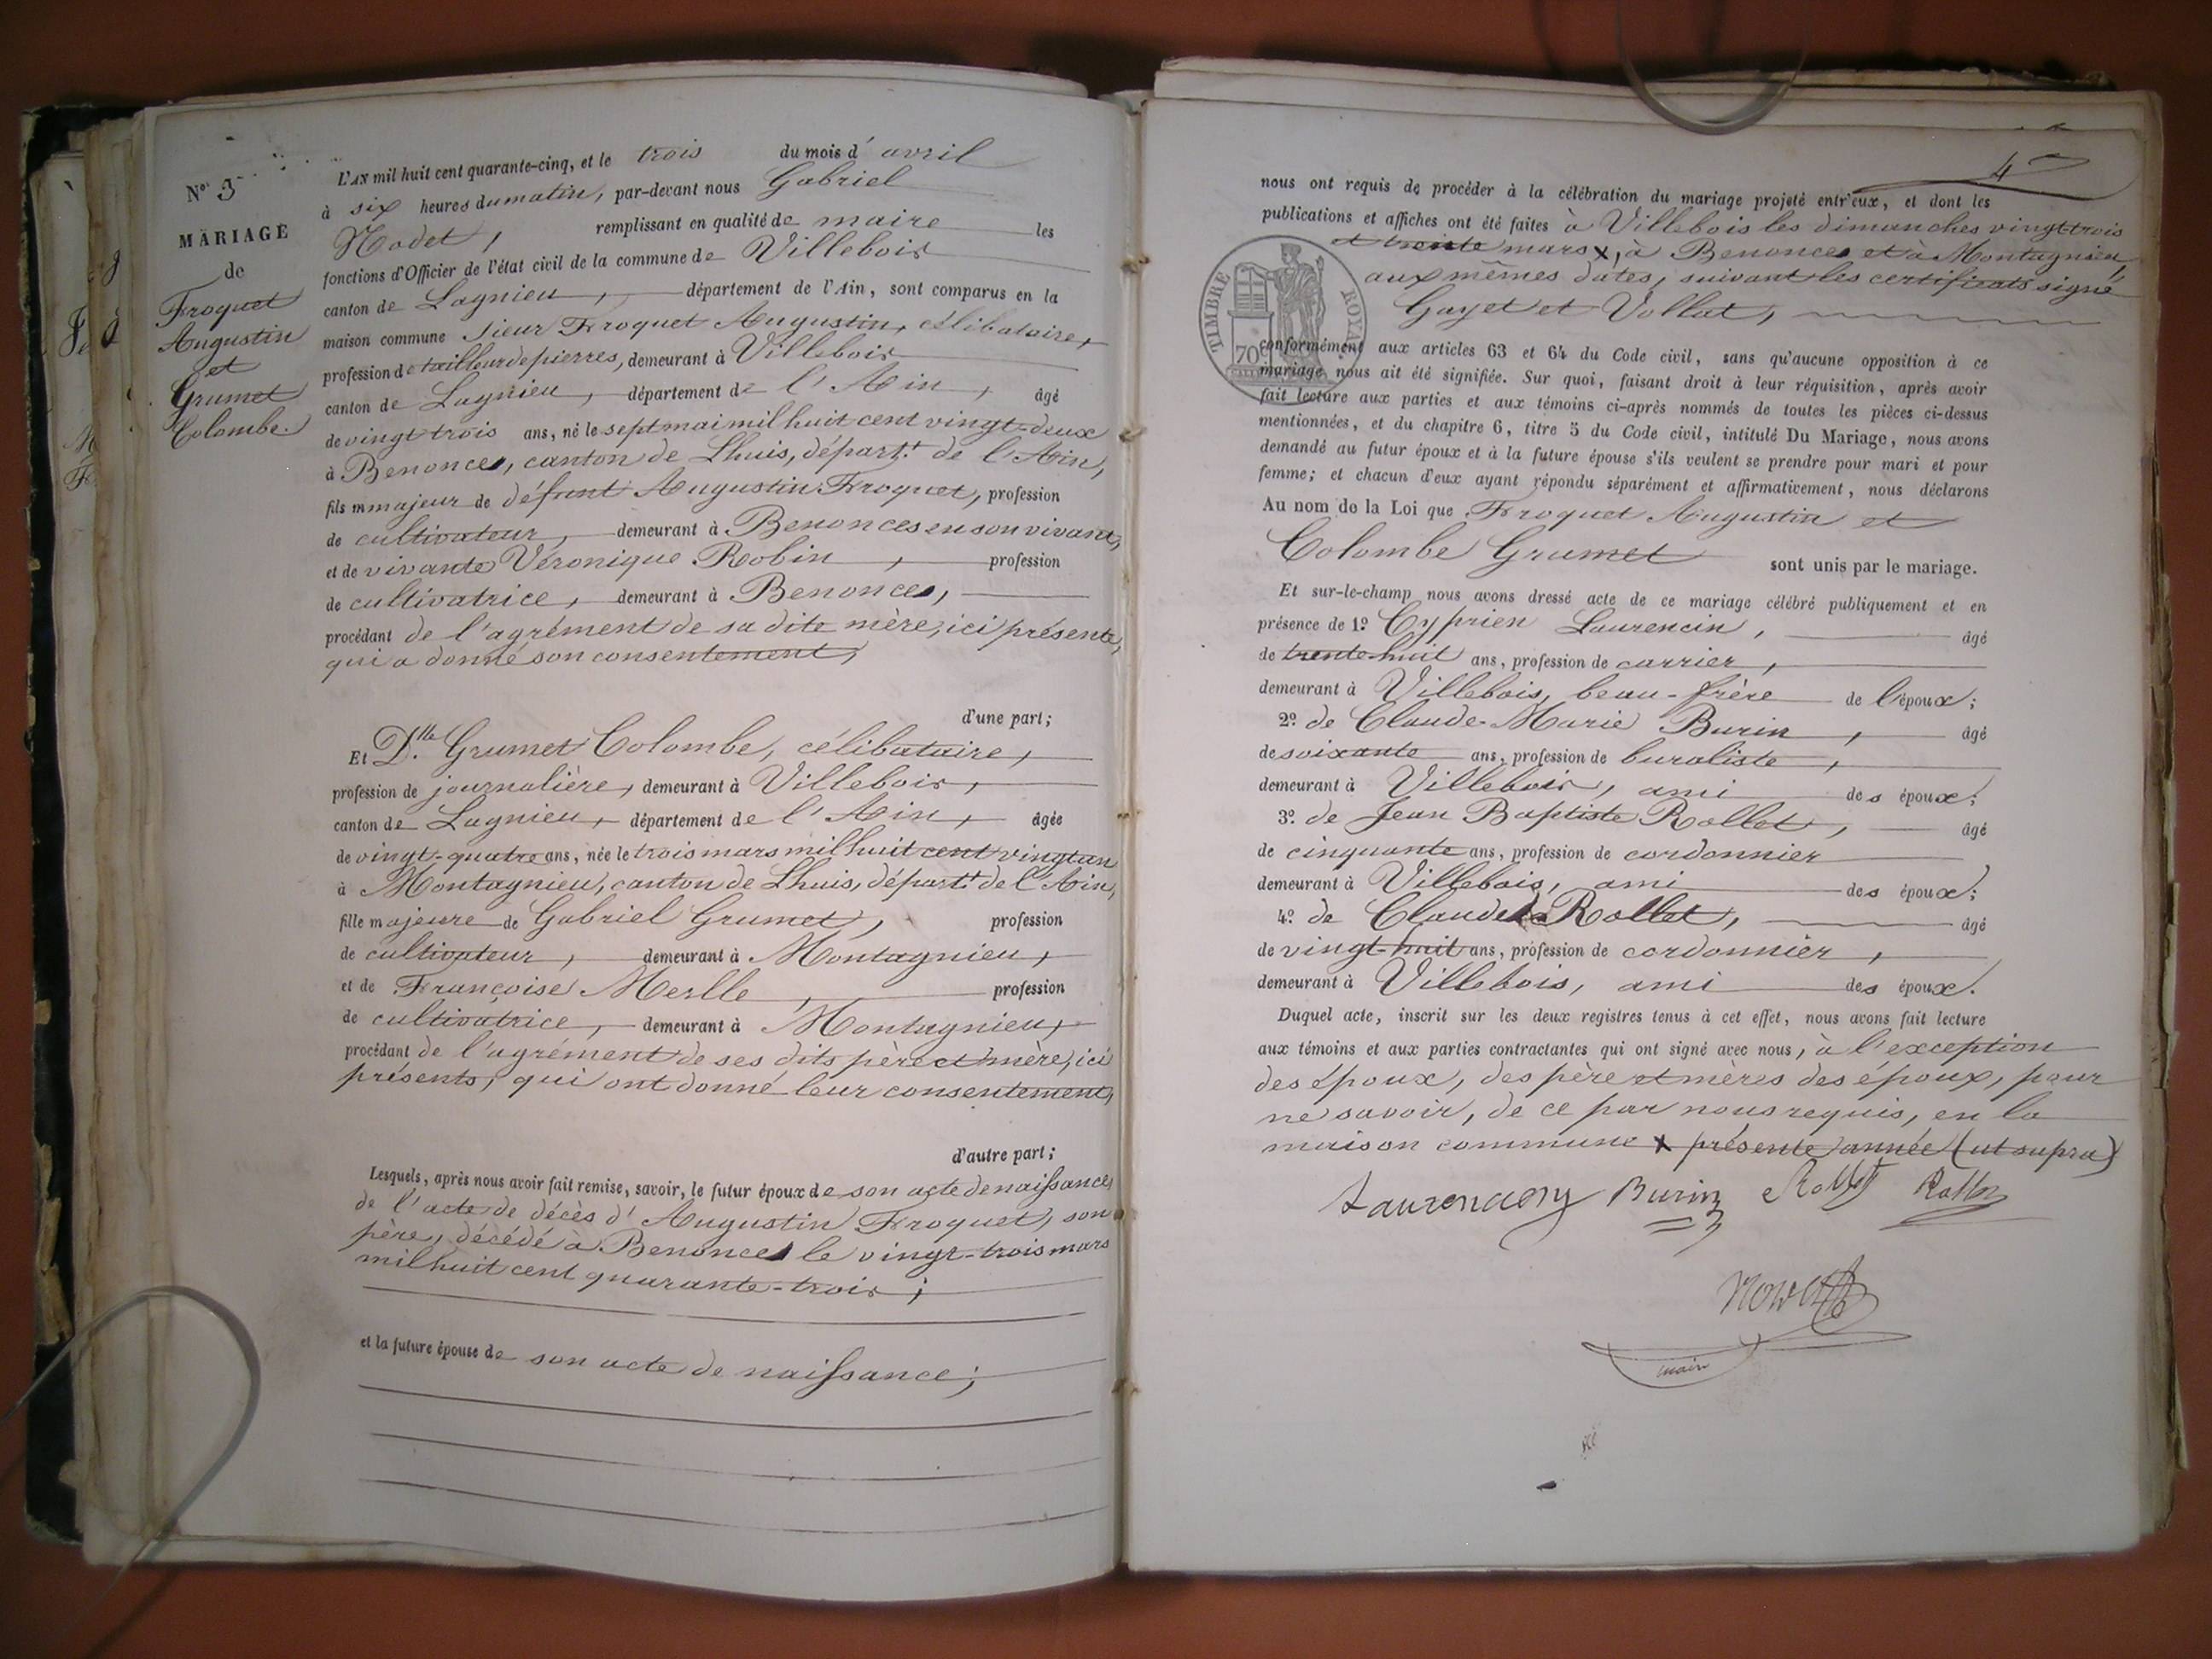 N° 3
MARIAGE
de
Froquet
Augustin
et
Grumet
Colombe.
L'AN mil huit cent quarante-cinq, et le trois du mois d'avril
à six heures du matin, par-devant nous Gabriel
Nodet, remplissant en qualité de maire les
fonctions d'Officier de l'état civil de la commune de Villebois
canton de Lagnieu, département de l'Ain, sont comparus en la
maison commune sieur Froquet Augustin, célibataire,
profession de tailleur de pierres, demeurant à Villebois
canton de Lagnieu, département de l'Ain, âgé
de vingt trois ans, né le sept mai mil huit cent vingt-deux
à Benonces, canton de Lhuis, départ.t de l'Ain,
fils majeur de défunt Augustin Froquet, profession
de cultivateur, demeurant à Benonces en son vivant,
et de vivante Véronique Robin, profession
de cultivatrice, demeurant à Benonces,
procédant de l'agrément de sa dite mère, ici présente,
qui a donné son consentement,
d'une part;
Et D.lle Grumet Colombe, célibataire,
profession de journalière, demeurant à Villebois,
canton de Lagnieu, département de l'Ain, âgée
de vingt-quatre ans, née le trois mars mil huit cent vingt un
à Montagnieu, canton de Lhuis, départ.t de l'Ain,
fille majeure de Gabriel Grumet, profession
de cultivateur, demeurant à Montagnieu,
et de Françoise Merlle, profession
de cultivatrice, demeurant à Montagnieu,
procédant de l'agrément de ses dits père et mère, ici
présents, qui ont donné leur consentement,
d'autre part;
Lesquels, après nous avoir fait remise, savoir, le futur époux de son acte de naissance,
de l'acte de décès d'Augustin Froquet, son
père, décédé à Benonces le vingt-trois mars
mil huit cent quarante-trois;
et la future épouse de son acte de naissance;
4
nous ont requis de procéder à la célébration du mariage projeté entr'eux, et dont les
publications et affiches ont été faites à Villebois les dimanches vingt-trois
et trente mars x, à Benonces et à Montagnieu,
aux mêmes dates, suivant les certificats signé
Gayet et Vollat,
TIMBRE ROYAL
70c
conformément aux articles 63 et 64 du Code civil, sans qu'aucune opposition à ce
mariage nous ait été signifiée. Sur quoi, faisant droit à leur réquisition, après avoir
fait lecture aux parties et aux témoins ci-après nommés de toutes les pièces ci-dessus
mentionnées, et du chapitre 6, titre 5 du Code civil, intitulé Du Mariage, nous avons
demandé au futur époux et à la future épouse s'ils veulent se prendre pour mari et pour
femme; et chacun d'eux ayant répondu séparément et affirmativement, nous déclarons
Au nom de la Loi que Froquet Augustin et
Colombe Grumet sont unis par le mariage.
Et sur-le-champ nous avons dressé acte de ce mariage célébré publiquement et en
présence de 1° Cyprien Laurencin, âgé
de trente-huit ans, profession de carrier,
demeurant à Villebois, beau-frère de l'époux;
2° de Claude-Marie Burin, âgé
de soixante ans, profession de buraliste,
demeurant à Villebois, ami des époux;
3° de Jean Baptiste Rollet, âgé
de cinquante ans, profession de cordonnier
demeurant à Villebois, ami des époux;
4° de Claude Rollet, âgé
de vingt-huit ans, profession de cordonnier,
demeurant à Villebois, ami des époux.
Duquel acte, inscrit sur les deux registres tenus à cet effet, nous avons fait lecture
aux témoins et aux parties contractantes qui ont signé avec nous, à l'exception
des époux, des père et mères des époux, pour
ne savoir, de ce par nous requis, en la
maison commune x présente année (ut supra)
Burin Rollet
maire